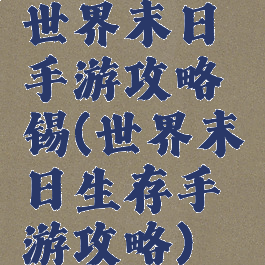 世界末日
手游攻略
锡(世界末
日生存手
游攻略)